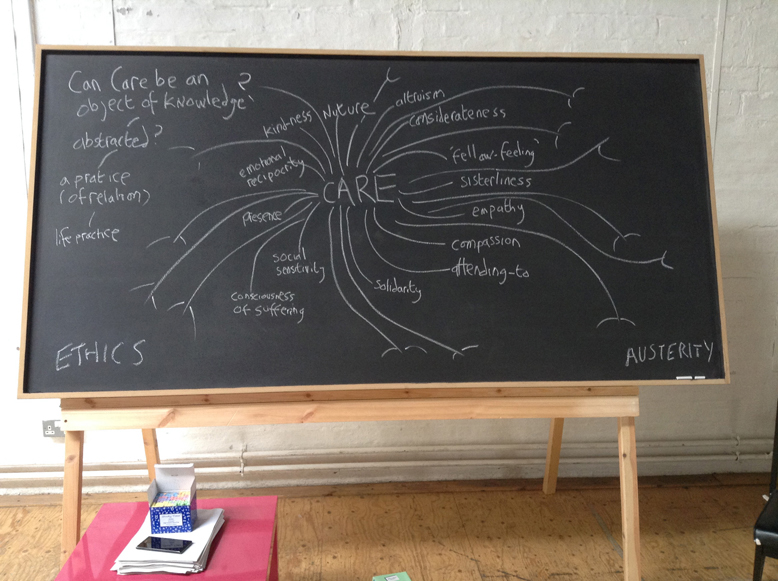 Can Care be an
object of knowledge?
abstracted?
a pratice
(of relation)
life practice
kindness
Nuture
altruism
considerateness
emotional
reciprocity
'fellow-feeling'
CARE
sisterliness
presence
empathy
compassion
social
sensitivity
attending-to
solidarity
consciousness
of suffering
ETHICS
AUSTERITY